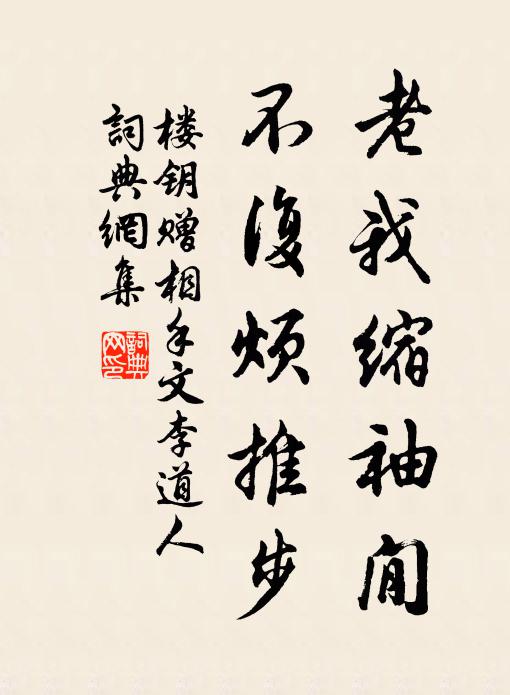 老我缩袖閒
不復烦推步
楼钥赠相手文李道人
詞典網集
詞典網印